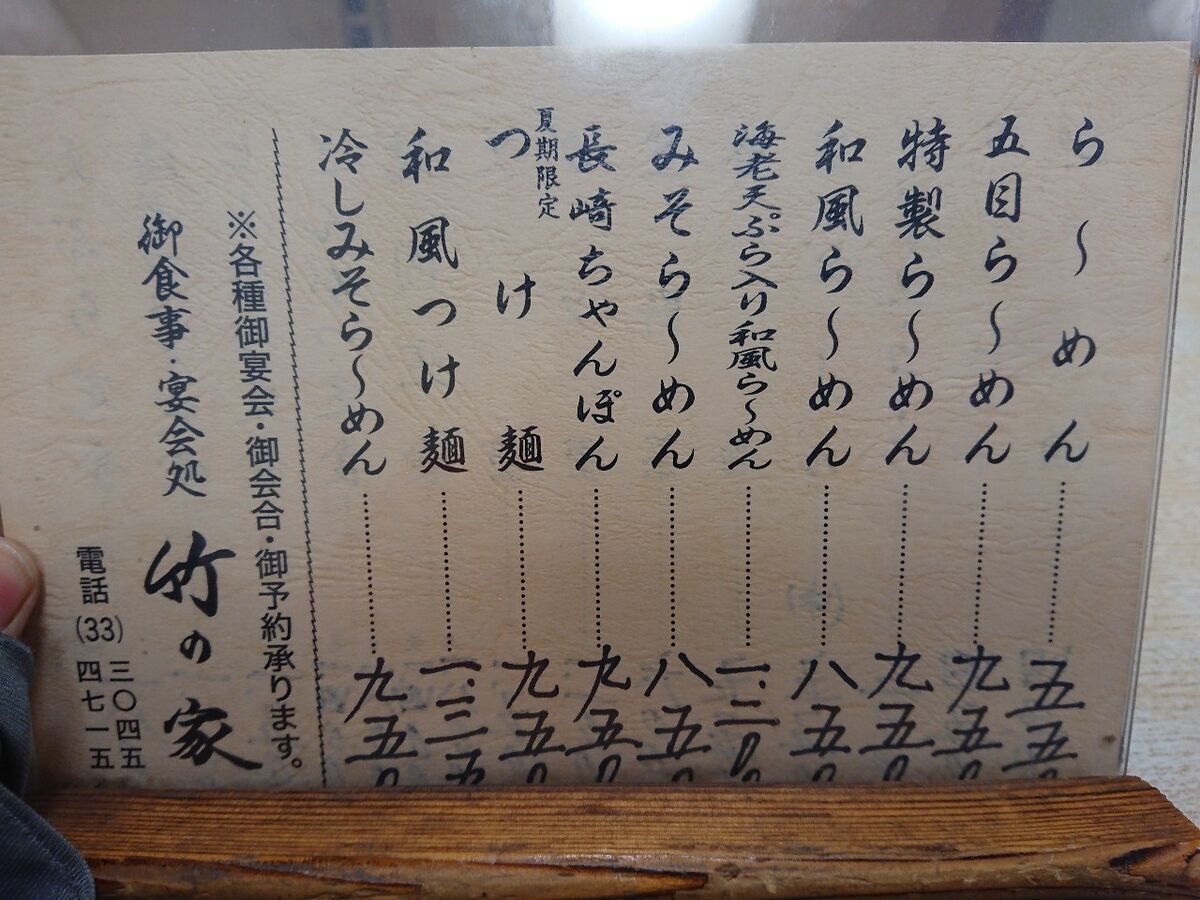 ら〜めん 五五0
五目ら〜めん 九五0
特製ら〜めん 九五0
和風ら〜めん 八五0
海老天ぷら入り和風ら〜めん 一.二00
みそら〜めん 八五0
長崎ちゃんぽん 九五0
夏期限定
つけ麺 九五0
和風つけ麺 一.三五
冷しみそら〜めん 九五0
※各種御宴会・御会合・御予約承ります。
御食事・宴会処 竹の家
電話(33)三〇四五
四七一五